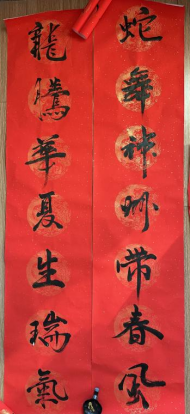 龍騰華夏生瑞氣
蛇舞神州帶春風